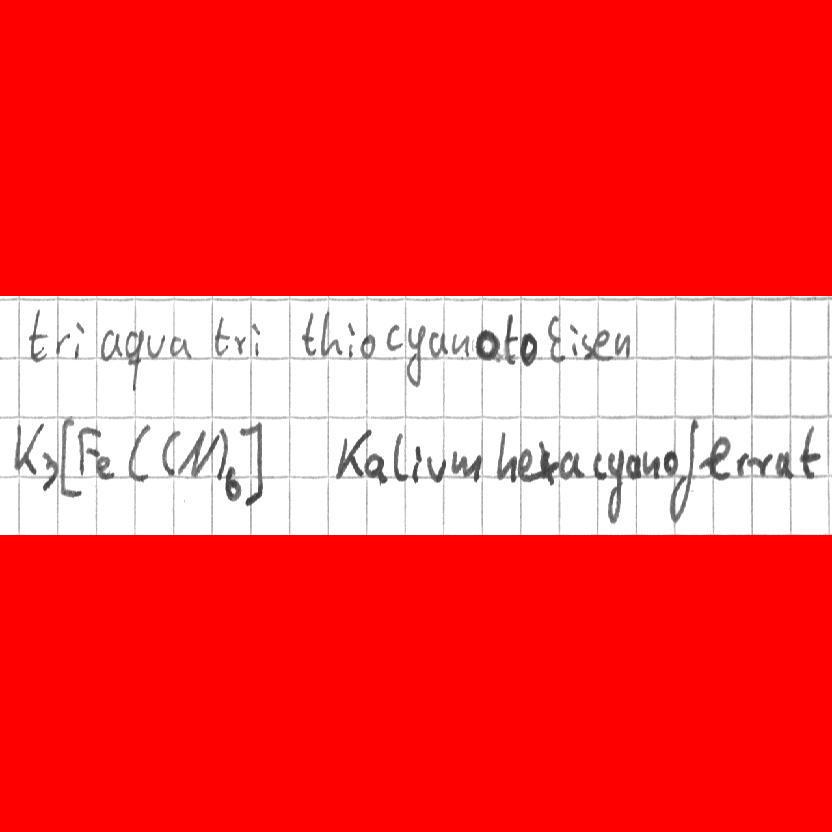 tri aqua tri thiocyanoto Eisen
K₃[Fe(CN)₆] Kalium hexacyanoferrat